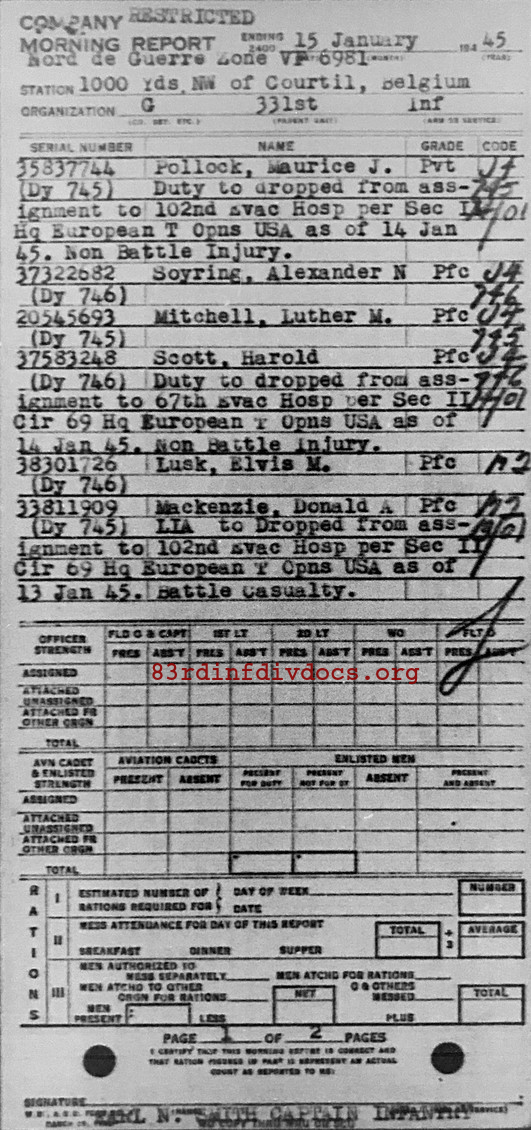 COMPANY RESTRICTED
MORNING REPORT ENDING 2400 15 January 1945
Nord de Guerre Zone VP 6981
STATION 1000 Yds NW of Courtil, Belgium
ORGANIZATION G 331st Inf
SERIAL NUMBER NAME GRADE CODE
35837744 Pollock, Maurice J. Pvt J4
(Dy 745) Duty to dropped from ass- 745
ignment to 102nd Evac Hosp per Sec II
Hq European T Opns USA as of 14 Jan
45. Non Battle Injury.
37322682 Soyring, Alexander N Pfc J4
(Dy 746) 746
20545693 Mitchell, Luther M. Pfc J4
(Dy 745) 745
37583248 Scott, Harold Pfc J4
(Dy 746) Duty to dropped from ass- 746
ignment to 67th Evac Hosp per Sec II
Cir 69 Hq European T Opns USA as of
14 Jan 45. Non Battle Injury.
38301726 Lusk, Elvis M. Pfc
(Dy 746)
33811909 Mackenzie, Donald A Pfc
(Dy 745) LIA to Dropped from ass-
ignment to 102nd Evac Hosp per Sec II
Cir 69 Hq European T Opns USA as of
13 Jan 45. Battle Casualty.
OFFICER STRENGTH FLD O & CAPT 1ST LT 2D LT WO FLT O
PRES ABS'T PRES ABS'T PRES ABS'T PRES ABS'T PRES ABS'T
ASSIGNED
83rdinfdivdocs.org
ATTACHED UNASSIGNED
ATTACHED FR OTHER ORGN
TOTAL
AVN CADET & ENLISTED STRENGTH AVIATION CADETS ENLISTED MEN
PRESENT ABSENT PRESENT FOR DUTY PRESENT NOT FOR DY ABSENT PRESENT AND ABSENT
ASSIGNED
ATTACHED UNASSIGNED
ATTACHED FR OTHER ORGN
TOTAL
RATIONS
I ESTIMATED NUMBER OF RATIONS REQUIRED FOR DAY OF WEEK DATE NUMBER
II MESS ATTENDANCE FOR DAY OF THIS REPORT TOTAL ÷ 3 AVERAGE
BREAKFAST DINNER SUPPER
III MEN AUTHORIZED TO MESS SEPARATELY MEN ATCHD FOR RATIONS
MEN ATCHD TO OTHER ORGN FOR RATIONS NET O & OTHERS MESSED TOTAL
MEN PRESENT LESS PLUS
PAGE 1 OF 2 PAGES
I CERTIFY THAT THIS MORNING REPORT IS CORRECT AND
THAT RATION FIGURES IN PART III REPRESENT AN ACTUAL
COUNT AS REPORTED TO ME:
SIGNATURE
N. SMITH CAPTAIN INFANTRY